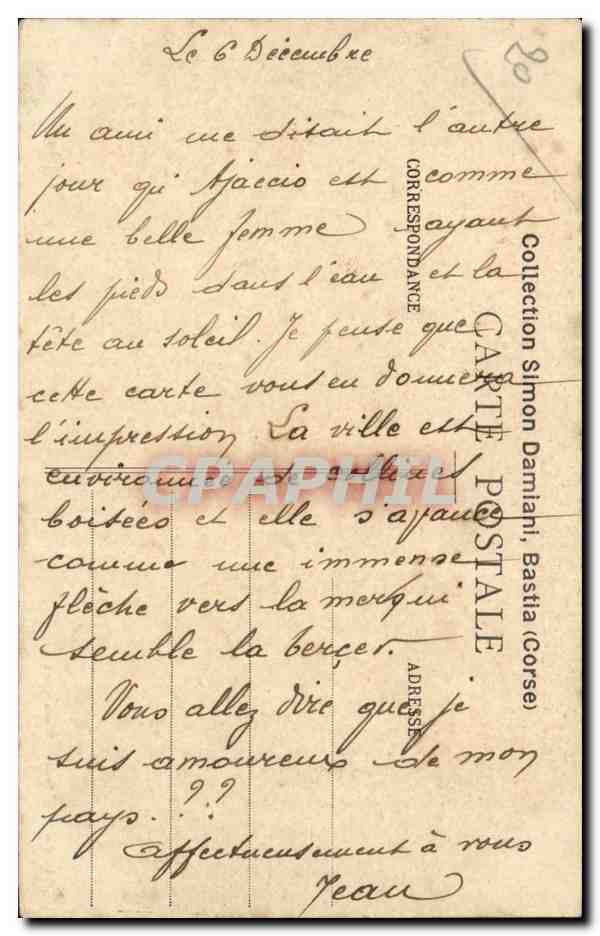 Le 6 Décembre
20
Un ami me disait l'autre
jour qu' Ajaccio est comme
une belle femme ayant
les pieds dans l'eau et la
tête au soleil. Je pense que
cette carte vous en donnera
l'impression. La ville est
environnée de collines
boisées et elle s'avance
comme une immense
flêche vers la mer qui
semble la berçer.
Vous allez dire que je
suis amoureux de mon
pays...??
Affectueusement à vous
Jean
CORRESPONDANCE
ADRESSE
CARTE POSTALE
Collection Simon Damiani, Bastia (Corse)
CPAPHIL